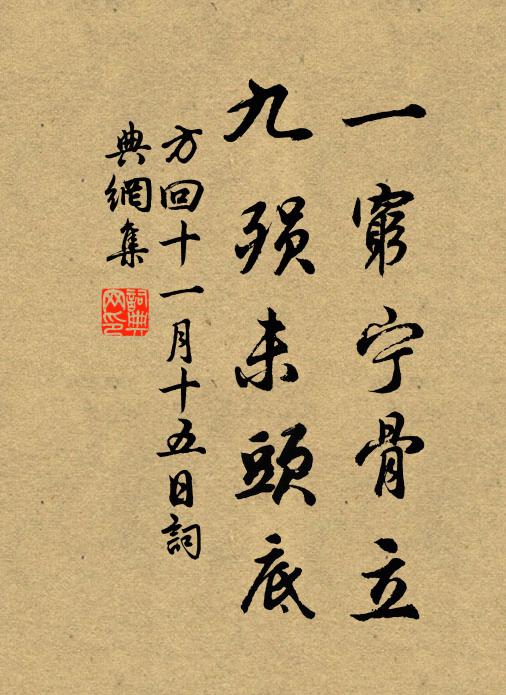 一窮宁骨立
九殞未頭底
方回十一月十五日詞
典網集
詞典
网印